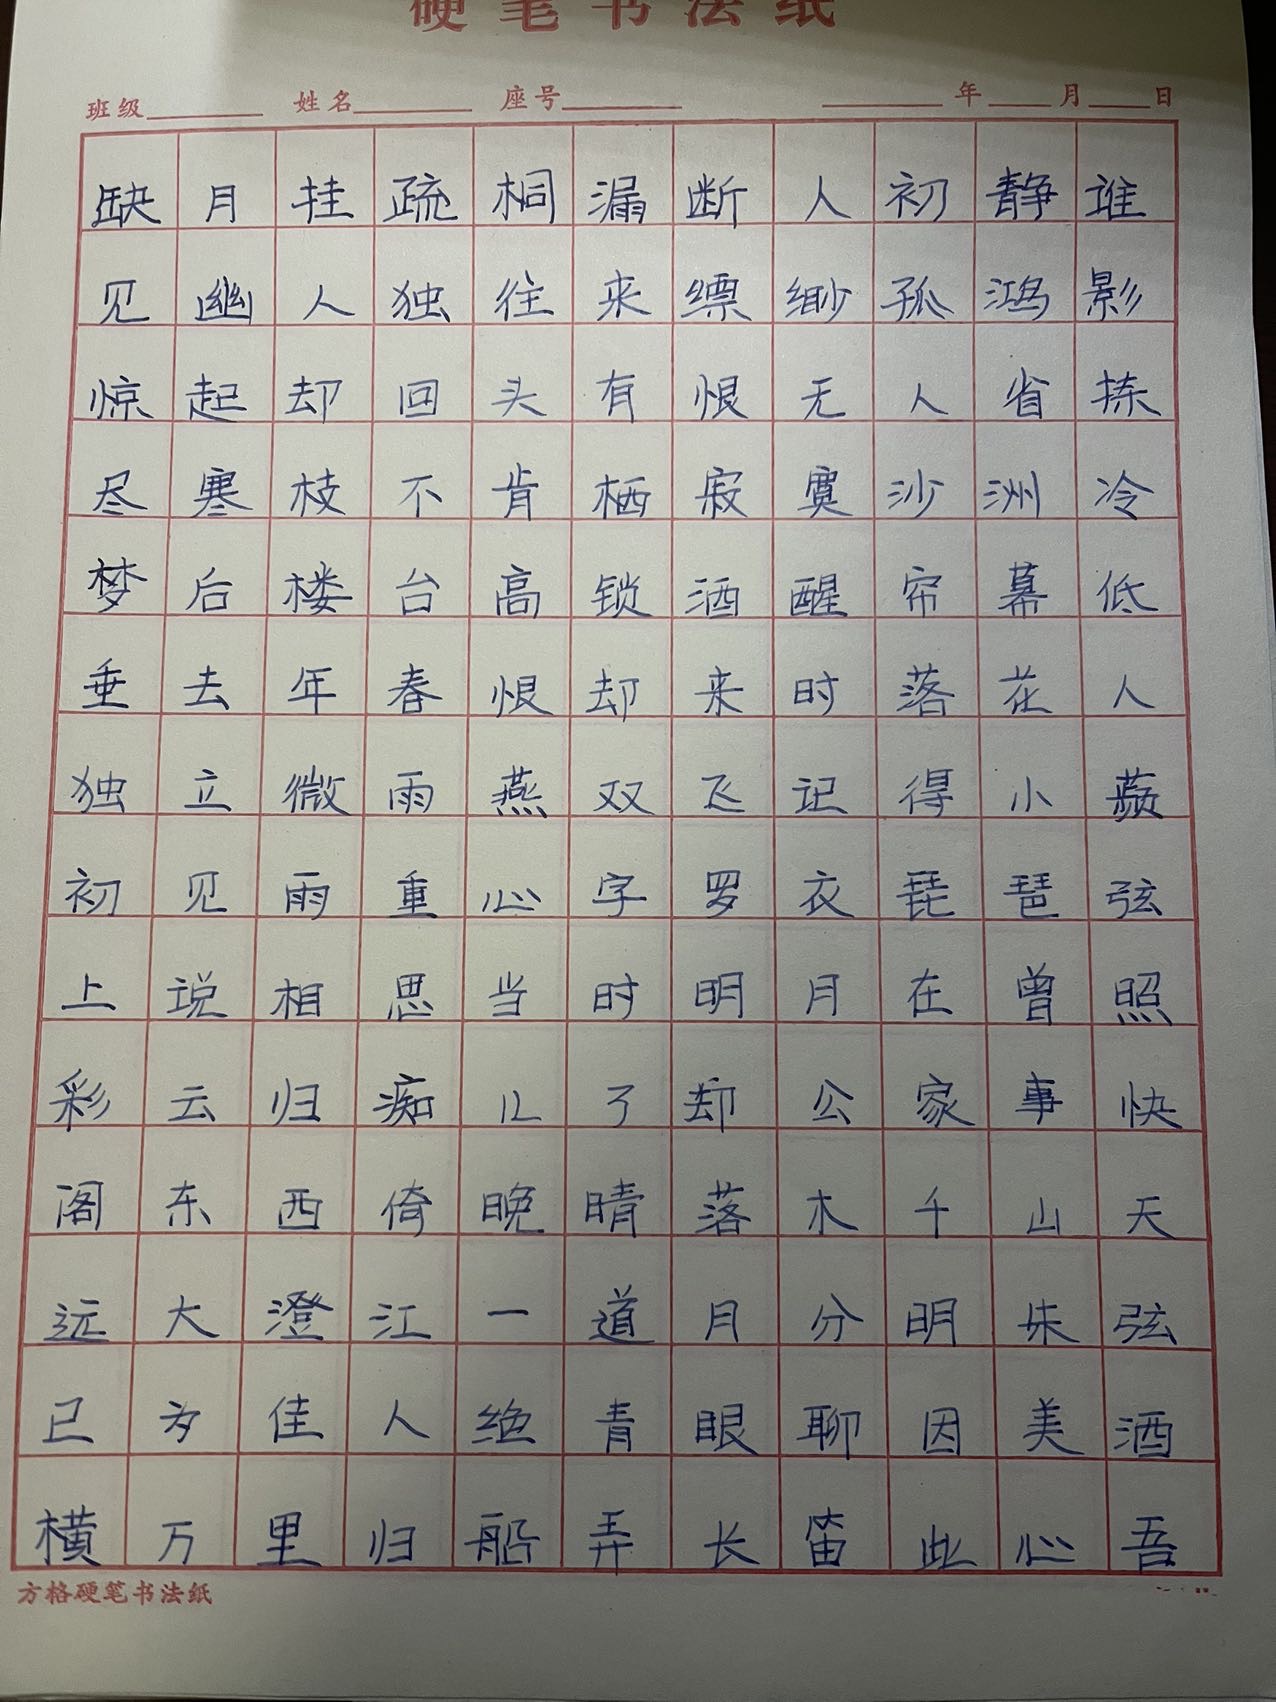 硬笔书法纸
班级 姓名 座号 年 月 日
缺月挂疏桐漏断人初静谁
见幽人独往来缥缈孤鸿影
惊起却回头有恨无人省拣
尽寒枝不肯栖寂寞沙洲冷
梦后楼台高锁酒醒帘幕低
垂去年春恨却来时落花人
独立微雨燕双飞记得小蘋
初见雨重心字罗衣琵琶弦
上说相思当时明月在曾照
彩云归痴儿了却公家事快
阁东西倚晚晴落木千山天
远大澄江一道月分明朱弦
已为佳人绝青眼聊因美酒
横万里归船弄长笛此心吾
方格硬笔书法纸